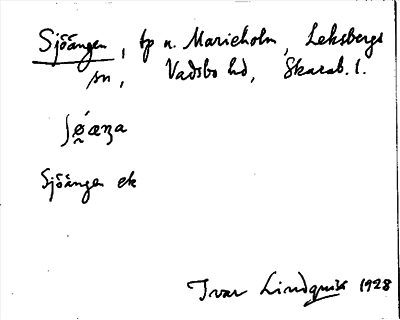 Sjöängen, tp u. Marieholm, Leksbergs
sn, Vadsbo hd, Skarab. l.
ʃǿ̰æŋa
Sjöängen ek
Ivar Lindquist 1928